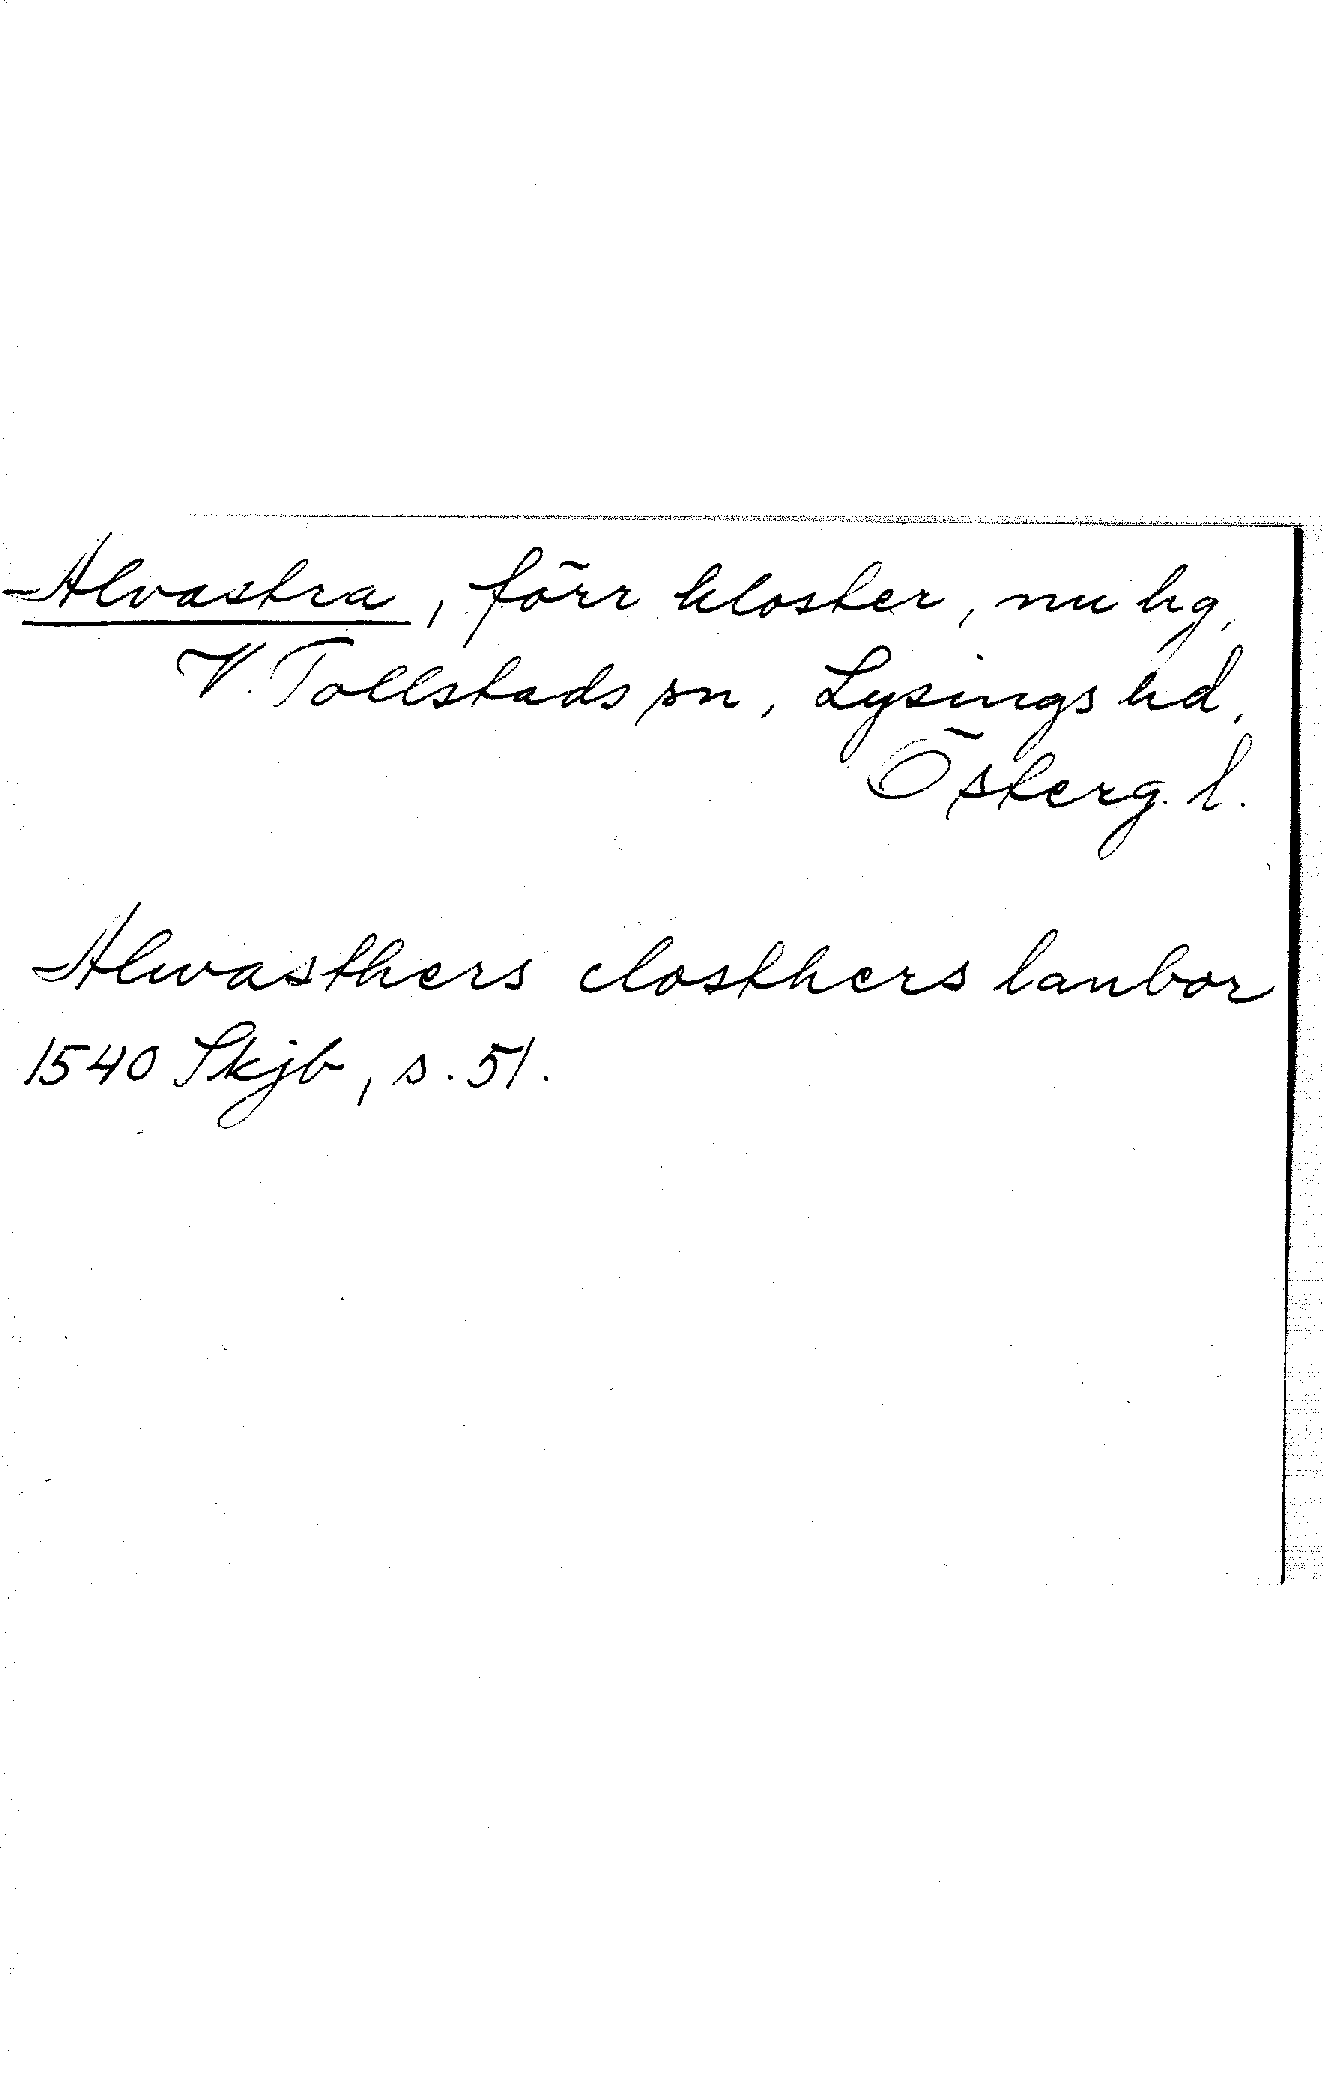 Alvastra, förr kloster, nu hg,
V. Tollstads sn, Lysings hd,
Österg. l.
Alwasthers closthers lanbor
1540 Skjb, s. 51.